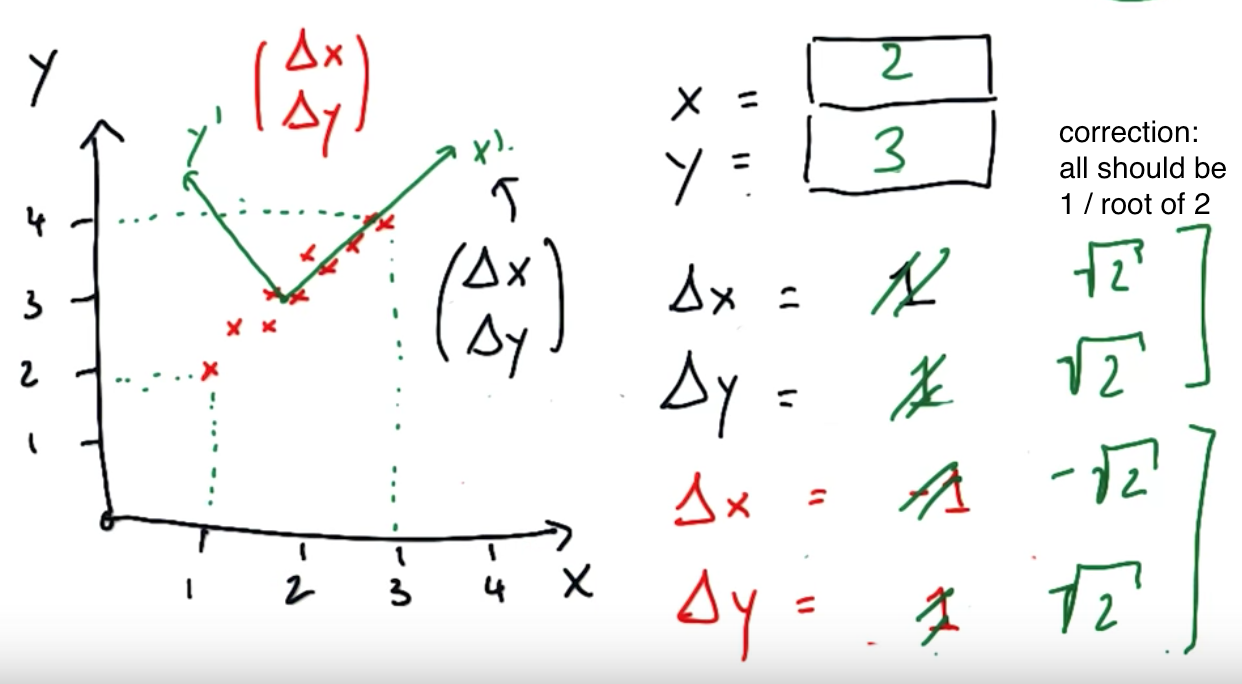 Y
(Δx
Δy)
y'
x'.
(Δx
Δy)
4
3
2
1
0
1 2 3 4 X
x = 2
y = 3
correction:
all should be
1 / root of 2
Δx = 1 √2
Δy = 1 √2
Δx = -1 -√2
Δy = 1 √2